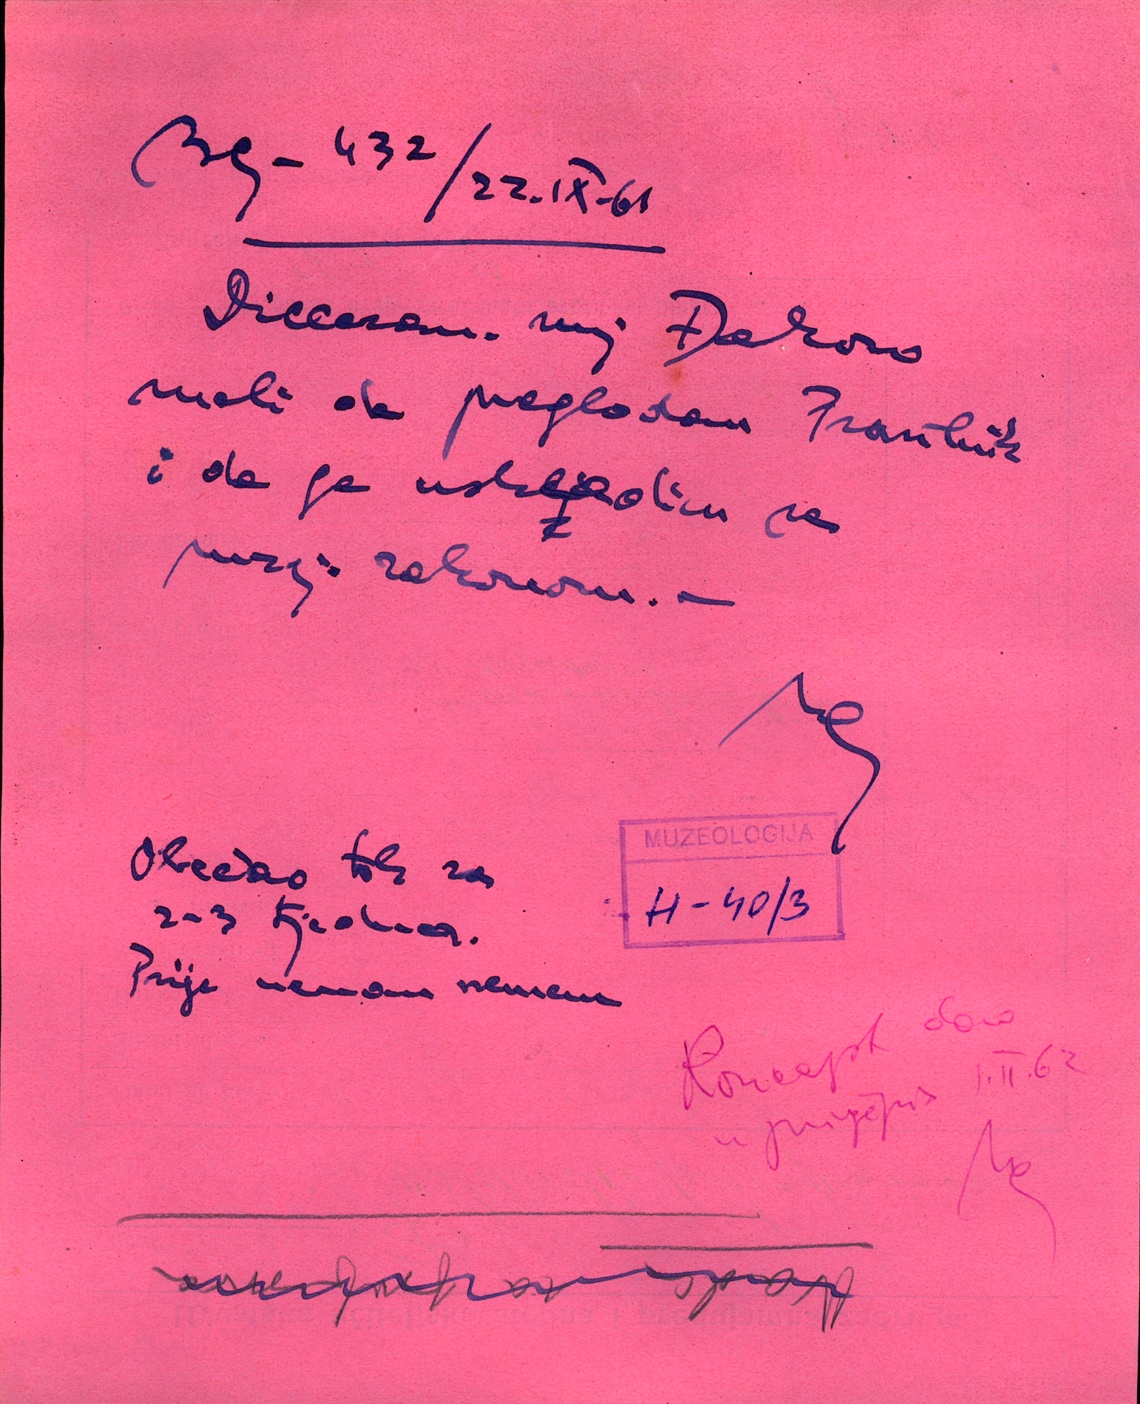 432/22.IX-61
Diecezan. muz Đakovo
moli da pregledam Pravilnik
i da ga uskladim sa
muzej. zakonom. —
MUZEOLOGIJA
H-40/3
Obećao tek za
2-3 tjedna.
Prije nemam vremena
Koncept dao
u prijepis 1.II.62